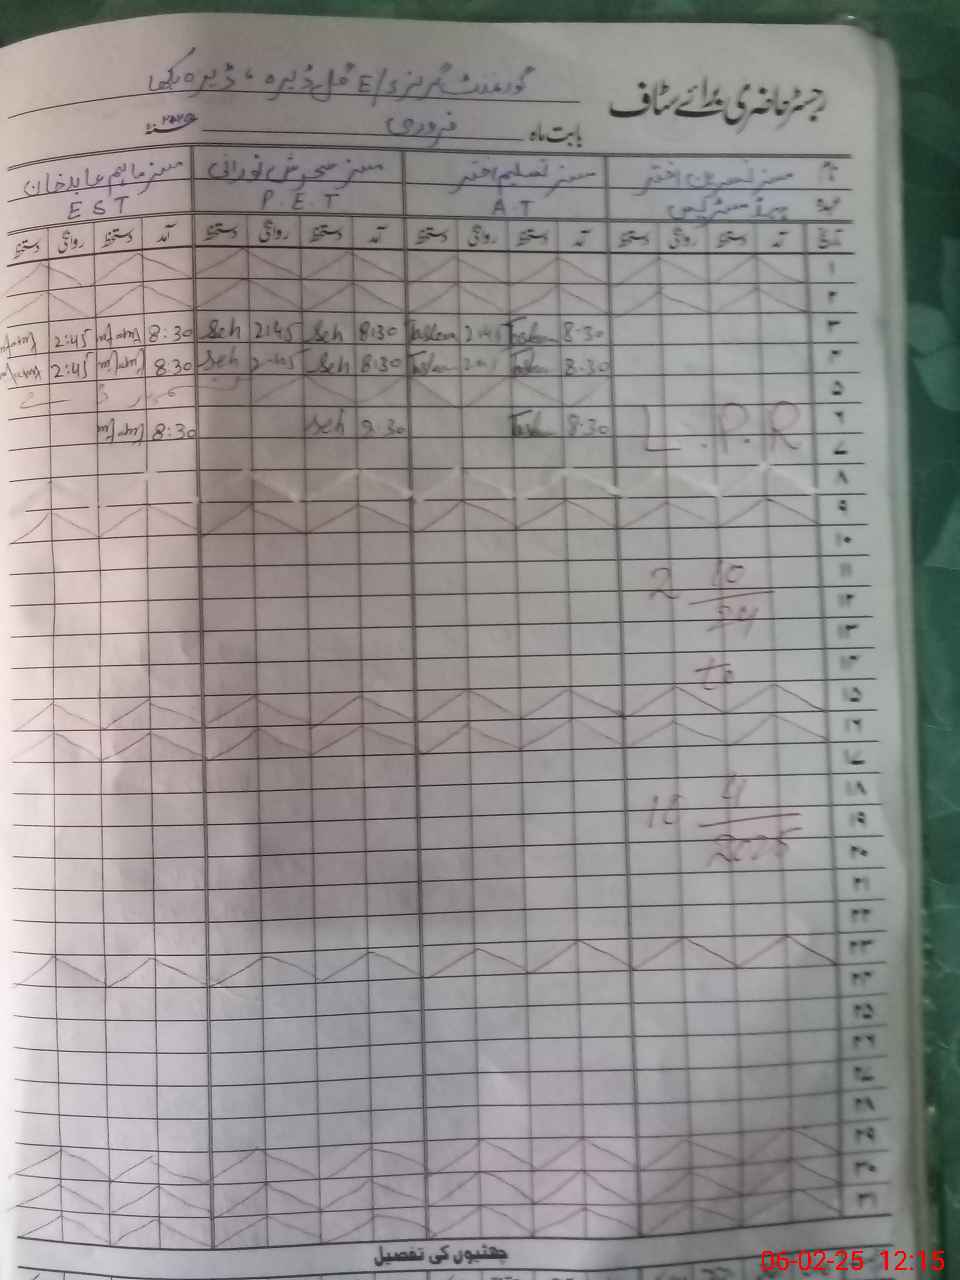 رجسٹر حاضری برائے سٹاف
گورنمنٹ گرلز E/S گل ڈیرہ ، ڈیرہ بکھا
بابت ماہ فروری سنہ ۲۰۲۵
نام مسز نسرین اختر مسز تسلیم اختر مسز سحرش نورانی مسز ماہم عابد خان
عہدہ ہیڈ مسٹریس A.T P.E.T E S T
تاریخ آمد دستخط روانگی دستخط آمد دستخط روانگی دستخط آمد دستخط روانگی دستخط آمد دستخط روانگی دستخط
۱
۲
۳ 8:30 Taslem 2:45 Taslem 8:30 Seh 2:45 Seh 8:30 2:45
۴ 8:30 Taslem Taslem 8:30 Seh 2:45 Seh 8:30 2:45
۵
۶ L.P.R 8:30 8:30 Seh 8:30
۷
۸
۹
۱۰
۱۱ 2 10
۱۲ 24
۱۳
۱۴ to
۱۵
۱۶
۱۷
۱۸ 4
۱۹
۲۰ 2025
۲۱
۲۲
۲۳
۲۴
۲۵
۲۶
۲۷
۲۸
۲۹
۳۰
۳۱
چھٹیوں کی تفصیل
06-02-25 12:15